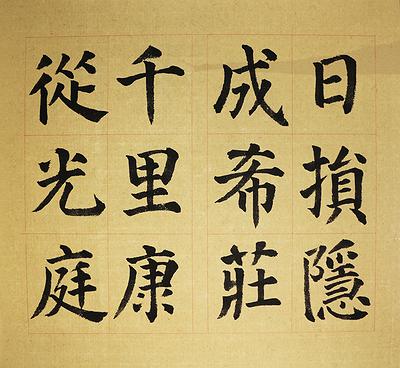 日損隱
成希莊
千里康
從光庭